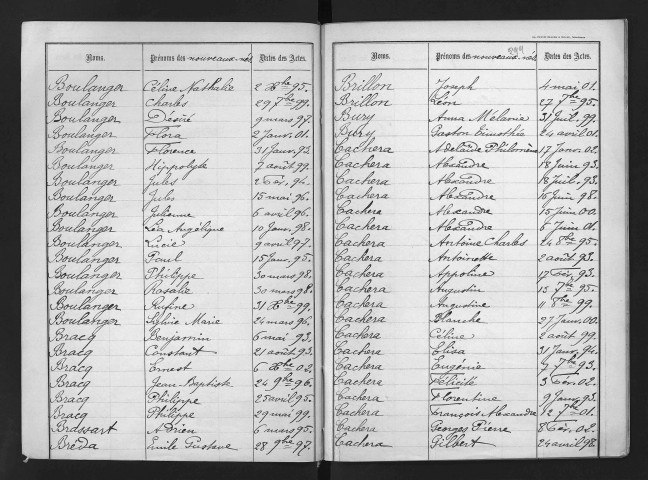 Noms. Prénoms des nouveaux-nés Dates des Actes.
Boulanger Céline Nathalie 2 Xbre 95.
Boulanger Charles 29 7bre 99.
Boulanger Désiré 9 mars 97.
Boulanger Flora 2 Janv. 01.
Boulanger Florence 31 Janv. 93.
Boulanger Hippolyte 7 août 99.
Boulanger Jules 2 Fév. 94.
Boulanger Jules 15 mai 96.
Boulanger Julienne 6 avril 96.
Boulanger Léa Angélique 10 Janv. 98.
Boulanger Lucie 9 avril 97.
Boulanger Paul 15 Janv. 95.
Boulanger Philippe 30 mars 98.
Boulanger Rosalie 30 mars 98.
Boulanger Rufine 31 Xbre 99.
Boulanger Sylvie Marie 24 mars 96.
Bracq Benjamin 6 mai 93.
Bracq Constant 21 août 93.
Bracq Ernest 6 Xbre 02.
Bracq Jean-Baptiste 24 9bre 96.
Bracq Philippe 25 avril 95.
Bracq Philippe 29 mai 99.
Brassart Adrien 6 mars 95.
Bréda Emile Gustave 28 9bre 97.
Noms. Prénoms des nouveaux-nés Dates des Actes.
Brillon Joseph 4 mai 01.
Brillon Léon 27 7bre 95.
Bury Anna Mélanie 31 Juil. 99.
Bury Gaston Timothée 24 avril 01.
Cachera Adélaïde Philomène 17 Janv. 02.
Cachera Alexandre 18 Juin 93.
Cachera Alexandre 18 Juil. 93.
Cachera Alexandre 16 Juin 98.
Cachera Alexandre 15 Juin 00.
Cachera Alexandre 6 Juin 01.
Cachera Antoine Charles 24 8bre 95.
Cachera Antoinette 2 août 93.
Cachera Appoline 17 Fév. 93.
Cachera Augustin 13 7bre 95.
Cachera Augustine 11 7bre 99.
Cachera Blanche 27 Janv. 00.
Cachera Céline 2 août 99.
Cachera Elisa 31 Janv. 94.
Cachera Eugénie 7 7bre 93.
Cachera Félicité 3 Fév. 02.
Cachera Florentine 9 Janv. 93.
Cachera François Alexandre 12 7bre 01.
Cachera Georges Pierre 8 Fév. 02.
Cachera Gilbert 24 avril 98.